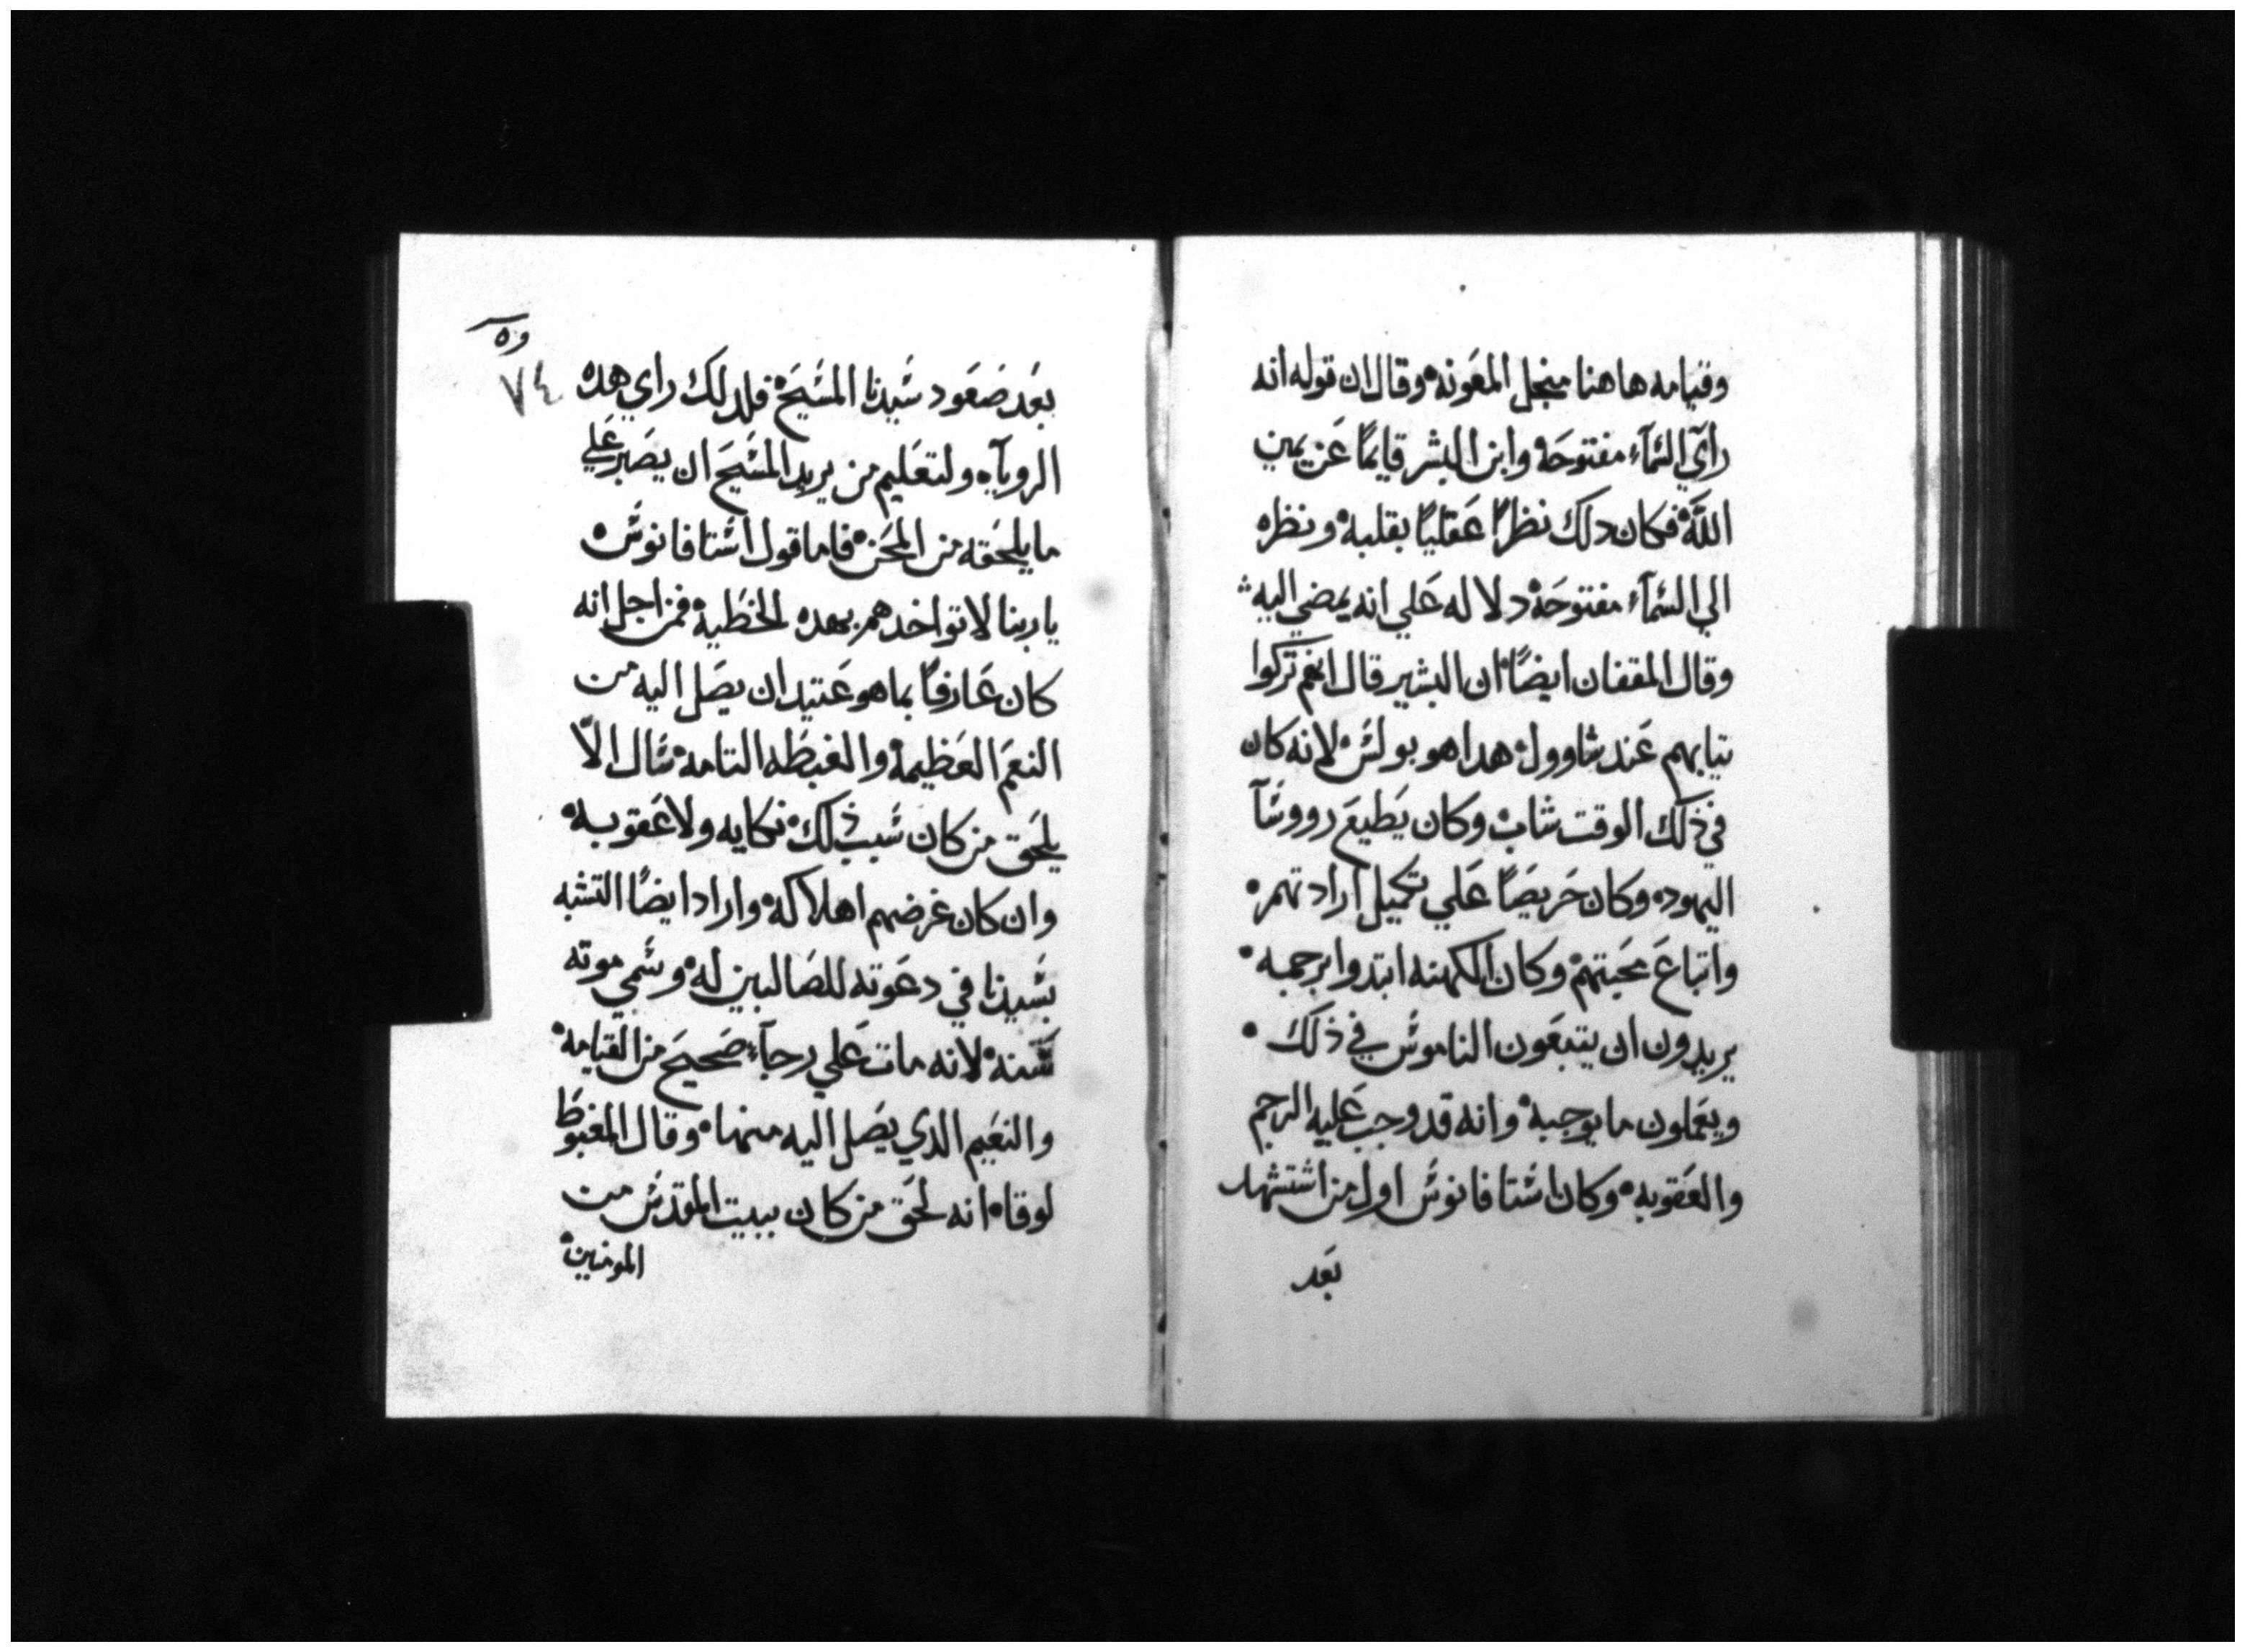 وقيامه هاهنا منجل المعونه وقال ان قوله انه
راي السمآء مفتوحه وابن البشر قايمًا عن يمين
الله فكان دلك نظرًا عقليًا بقلبه ونظره
الي السمآء مفتوحه دلاله علي انه يمضي اليه
وقال المقفان ايضًا ان البشير قال انهم تركوا
تيابهم عند شاوول هدا هو بولس لانه كان
في ذلك الوقت شاب وكان يطيع رووسآ
اليهود وكان حريصًا علي تكميل ارادتهم
واتباع محبتهم وكان الكهنه ابتدوا برجمه
يريدون ان يتبعون الناموس في ذلك
ويعملون ما يوجبه وانه قد وجب عليه الرجم
والعقوبه وكان اشتافانوس اول من استشهد
بعد
وه
٧٤
بعد صعود سيدنا المسيح فلدلك راي هده
الروياه ولتعليم من يريد المسيح ان يصبر علي
ما يلحقه من المحن فاما قول اشتافانوس
ياربنا لا تواخدهم بهده الخطيه فمن اجل انه
كان عارفًا بما هو عتيد ان يصل اليه من
النعم العظيمه والغبطه التامه سال الّا
يلحق من كان سبب ذلك نكايه ولا عقوبه
وان كان غرضهم اهلاكه واراد ايضًا التشبه
بسيدنا في دعوته للصالبين له وسمي موته
سنه لانه مات علي رجآء صحيح من القيامه
والنعيم الدي يصل اليه منها وقال المغبوط
لوقا انه لحق من كان ببيت المقدس من
المومنين